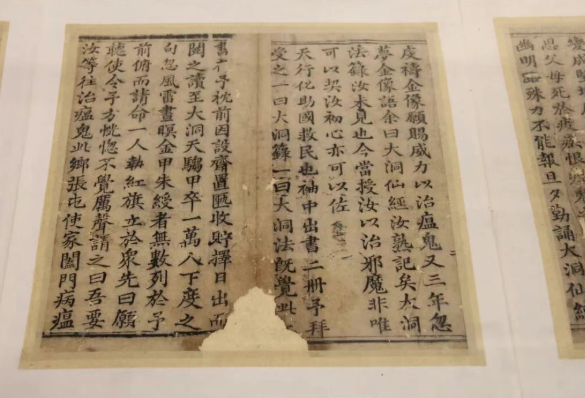 虔禱金像願賜威力以治瘟鬼又三年忽
夢金像語余曰大洞仙經汝熟記矣大洞
法籙汝未見也今當授汝以治邪魔非唯
可以契汝初心亦可以佐
天行化助國救民也袖中出書二冊予拜
受之一曰大洞籙一曰大洞法既覺此二
書在予枕前因設齋置匭收貯擇日出而
閱之讀至大洞天騶甲卒一萬八下度之
句忽風雷晝暝金甲朱綬者無數列於予
前俯而請命一人執紅旗立於眾先曰願
聽使令予方恍惚不覺厲聲謂之曰吾要
汝等往治瘟鬼此鄉張屯使家闔門病瘟
恩父母死於疫恨
幽明殊力不能報旦夕勤誦大洞仙經